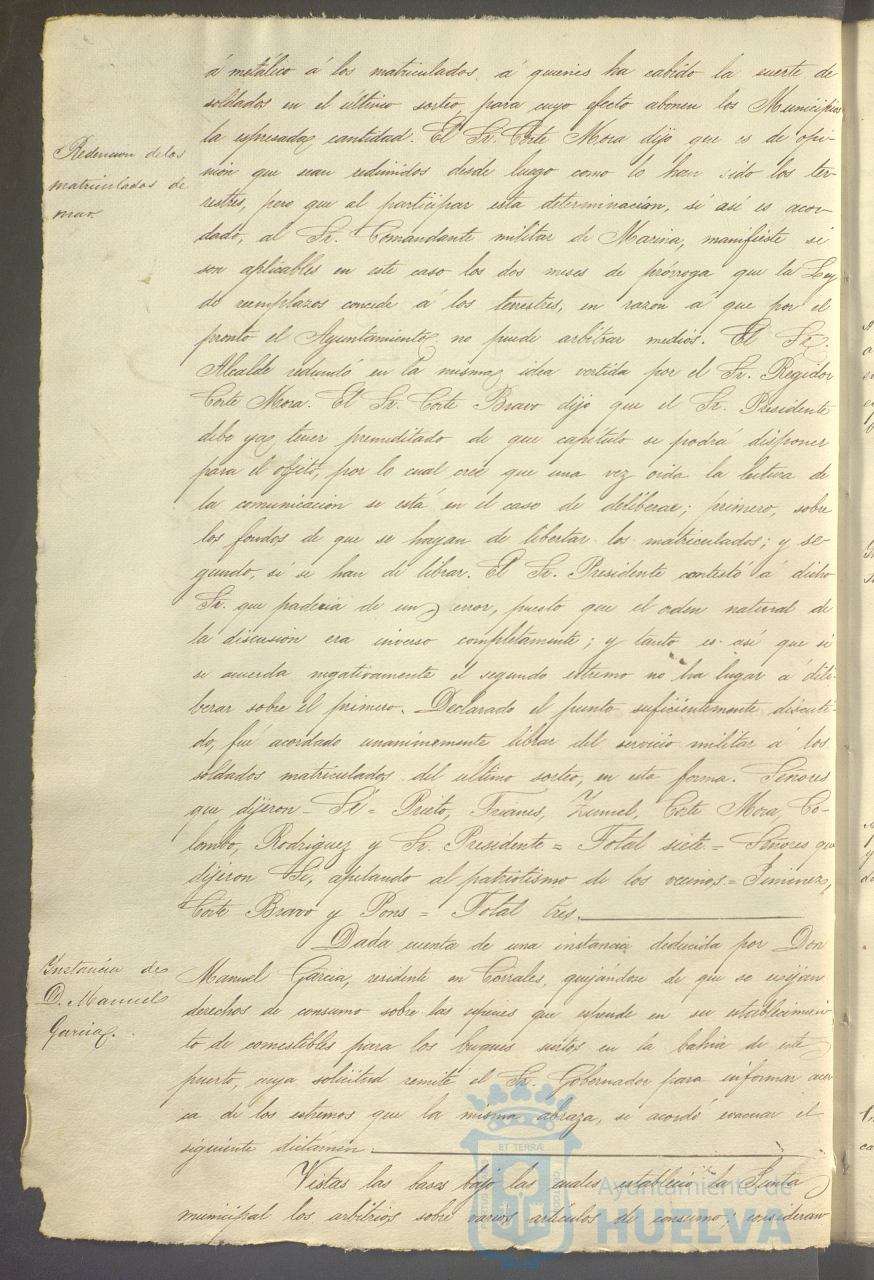 á metálico á los matriculados á quienes ha cabido la suerte de
soldados en el último sorteo, para cuyo efecto abonen los Municipios
la espresada cantidad. El Sr. Corte Mora dijo que es de opi-
Redencion de los
matriculados de
mar.
nion que sean redimidos desde luego como lo han sido los ter-
restres, pero que al participar esta determinacion, si así es acor-
dado, al Sr. Comandante militar de Marina, manifieste si
son aplicables en este caso los dos meses de prórroga que la Ley
de reemplazos concede á los terrestres, en razon á que por el
pronto el Ayuntamiento no puede arbitrar medios. El Sr.
Alcalde redundó en la misma idea vertida por el Sr. Regidor
Corte Mora. El Sr. Corte Bravo dijo que el Sr. Presidente
debe ya tener premeditado de que capítulo se podrá disponer
para el objeto, por lo cual cree que una vez oida la lectura de
la comunicacion se está en el caso de deliberar; primero, sobre
los fondos de que se hayan de libertar los matriculados; y se-
gundo, si se han de librar. El Sr. Presidente contestó á dicho
Sr. que padecia de un error, puesto que el orden natural de
la discusion era inverso completamente; y tanto es así que si
se acuerda negativamente el segundo estremo no ha lugar a deli-
berar sobre el primero. Declarado el punto suficientemente discuti-
do, fué acordado unanimemente librar del servicio militar á los
soldados matriculados del ultimo sorteo, en esta forma. Señores
que dijeron - Sí = Prieto, Frianes, Zumel, Corte Mora, Co-
lombo, Rodriguez y Sr. Presidente = Total siete = Señores que
dijeron Si, apelando al patriotismo de los vecinos = Jimenez,
Corte Bravo y Pons = Total tres.
Dada cuenta de una instancia deducida por Don
Instancia de
D. Manuel
Garcia.
Manuel Garcia, residente en Corrales, quejándose de que se exijan
derechos de consumo sobre las especies que espende en su establecimien
to de comestibles para los buques surtos en la bahia de este
puerto, cuya solicitud remite el Sr. Gobernador para informar acer
ca de los estremos que la misma abraza, se acordó evacuar el
siguiente dictamen.
Vistas las bases bajo las cuales estableció la Junta
municipal los arbitrios sobre varios artículos de consumo; consideran
ET TERRÆ
Ayuntamiento de
HUELVA